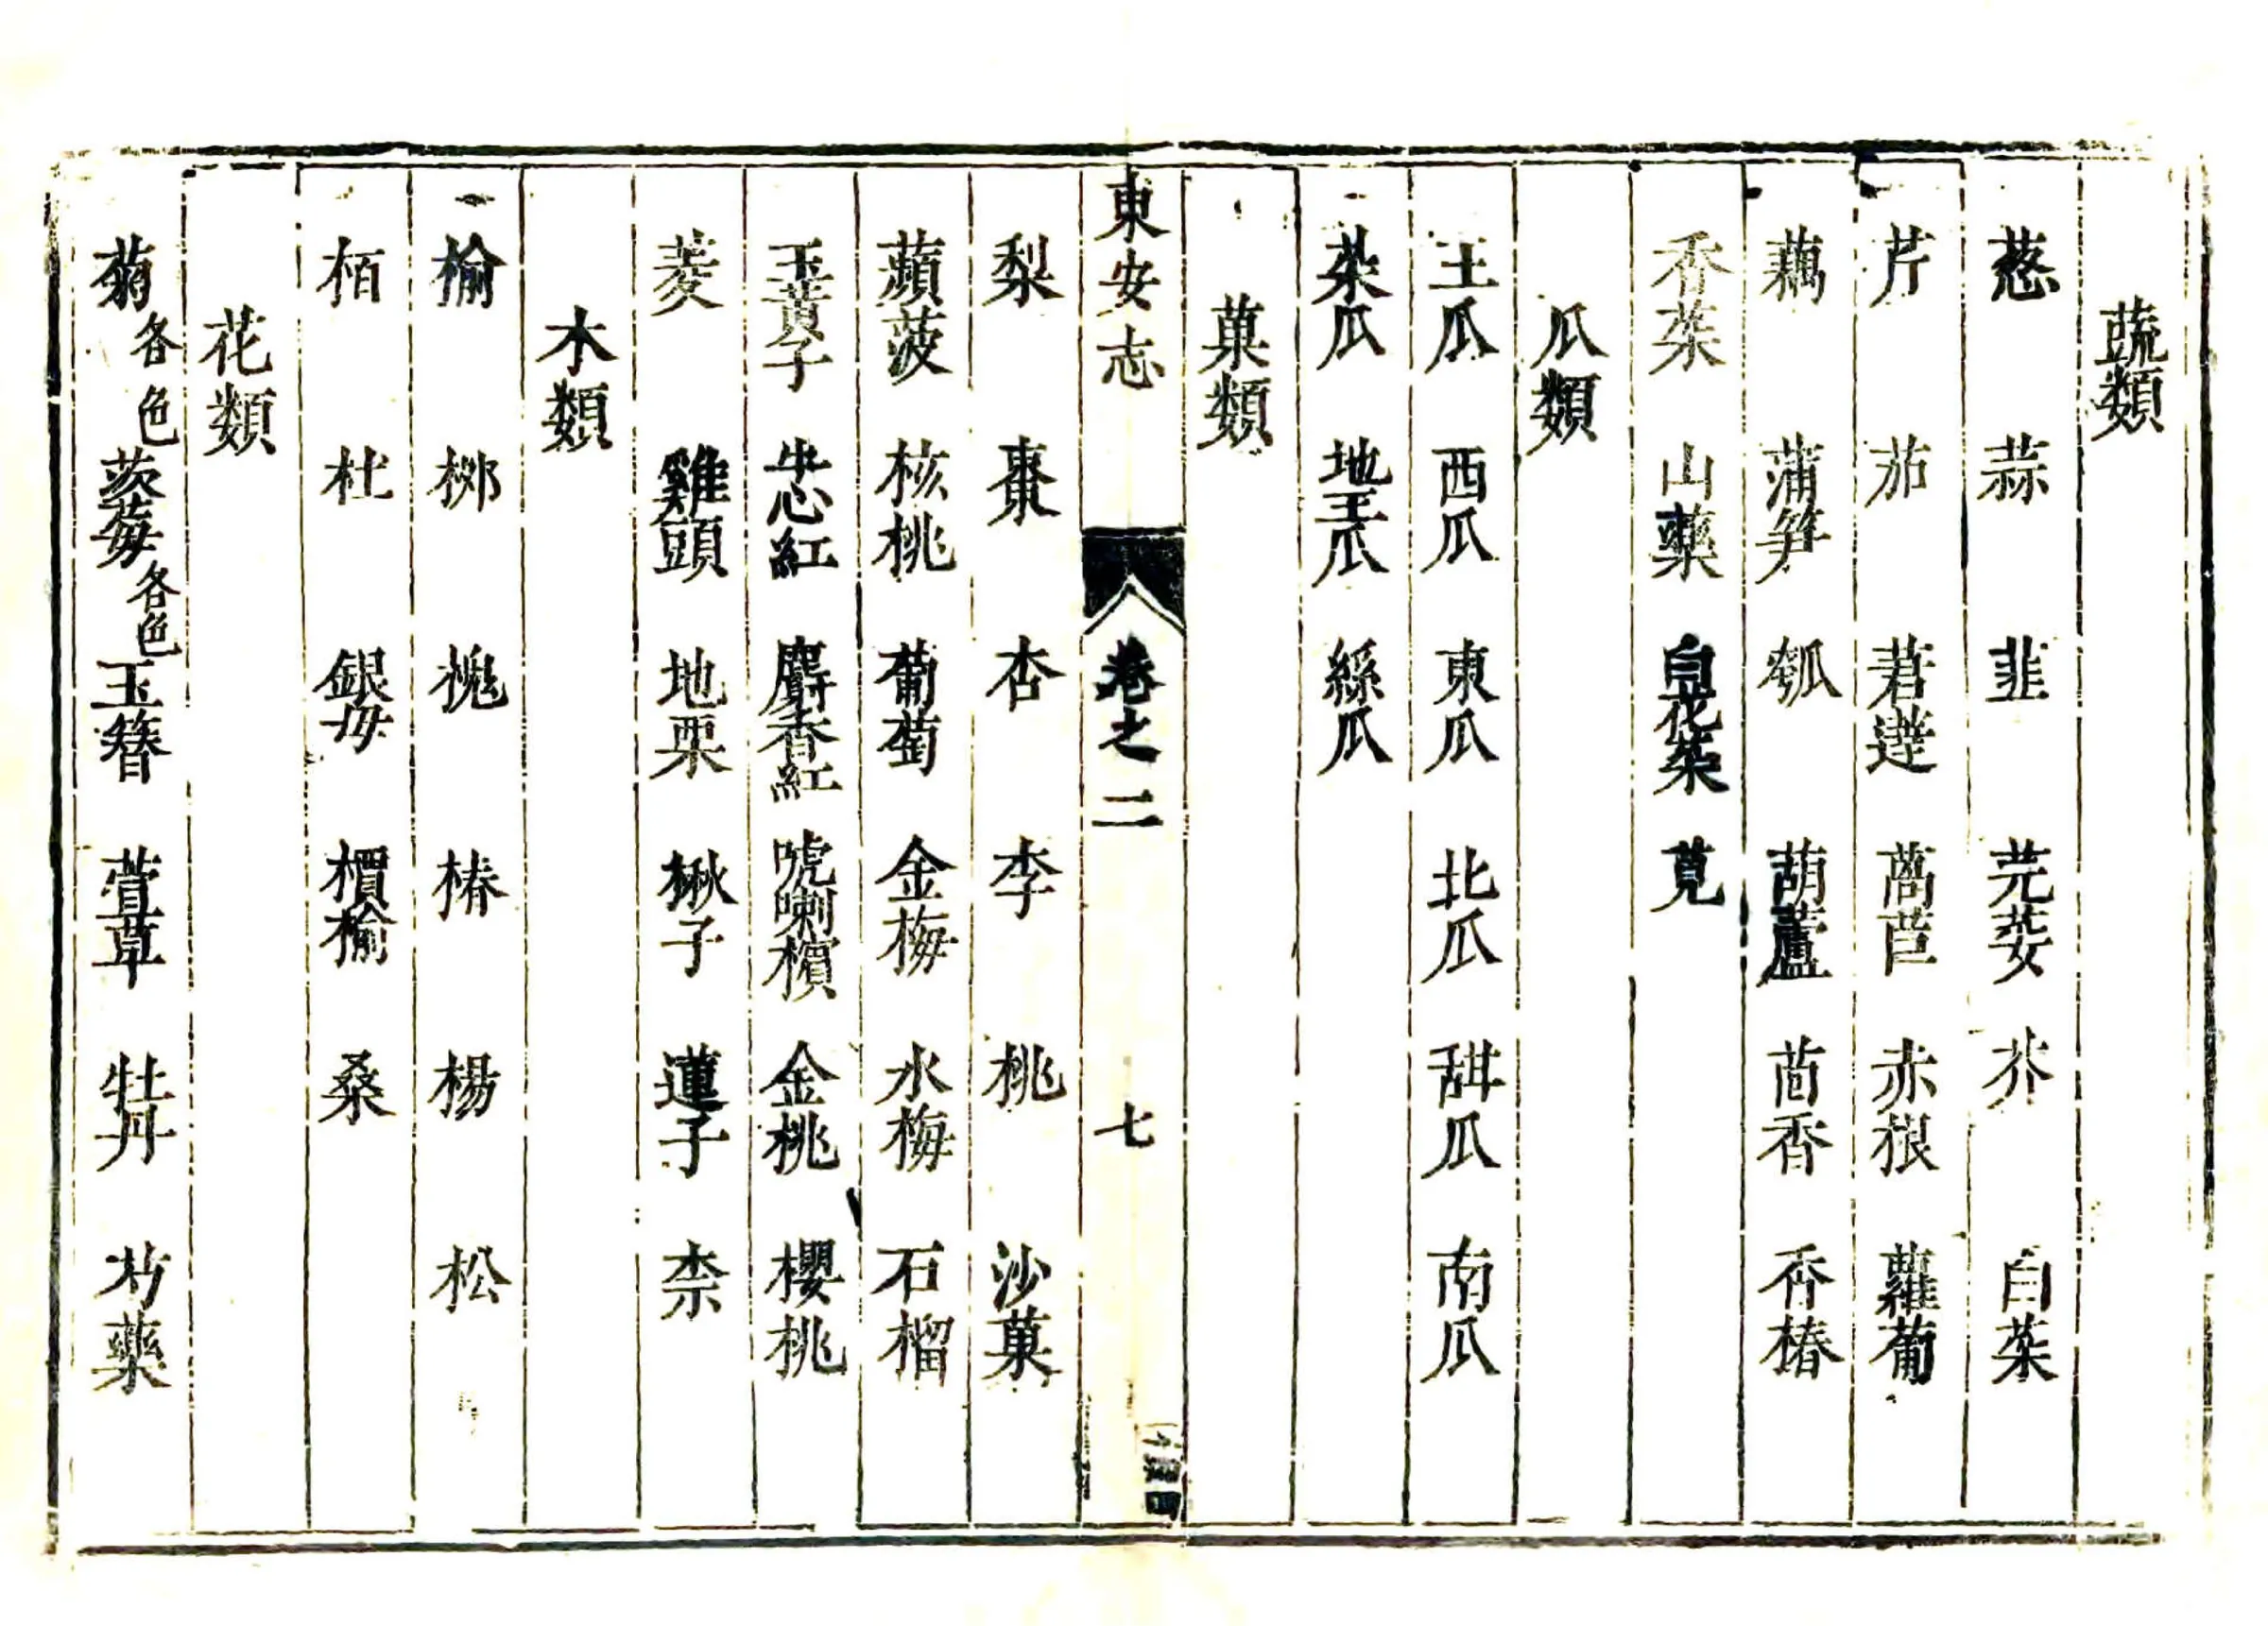 蔬類
葱 蒜 韭 芫荽 芥 白菜
芹 茄 莙薘 萵苣 赤根 蘿蔔
藕 蒲笋 瓠 葫蘆 茴香 香椿
香菜 山藥 白花菜 莧
瓜類
王瓜 西瓜 東瓜 北瓜 甜瓜 南瓜
菜瓜 地王瓜 絲瓜
菓類
東安志 卷之二 七
梨 棗 杏 李 桃 沙菓
蘋菠 核桃 葡萄 金梅 水梅 石榴
玉黃子 虎喇檳 金桃 櫻桃
菱 雞頭 地栗 楸子 蓮子 柰
木類
榆 柳 槐 椿 楊 松
栢 杜 銀母 檟榆 桑
花類
菊各色 茨莓各色 玉簪 萱草 牡丹 芍藥